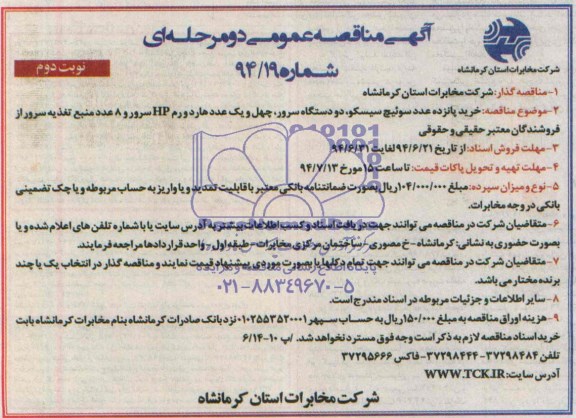 آگهی مناقصه عمومی دو مرحله‌ای
شماره ۹۴/۱۹
نوبت دوم
شرکت مخابرات استان کرمانشاه
۱- مناقصه گذار: شرکت مخابرات استان کرمانشاه
۲- موضوع مناقصه: خرید پانزده عدد سوئیچ سیسکو، دو دستگاه سرور، چهل و یک عدد هارد و رم HP سرور و ۸ عدد منبع تغذیه سرور از
فروشندگان معتبر حقیقی و حقوقی
۳- مهلت فروش اسناد: از تاریخ ۹۴/۶/۲۱ لغایت ۹۴/۶/۳۱
۴- مهلت تهیه و تحویل پاکات قیمت: تا ساعت ۱۵ مورخ ۹۴/۷/۱۳
۵- نوع و میزان سپرده: مبلغ ۱۰۴/۰۰۰/۰۰۰ ریال بصورت ضمانتنامه بانکی معتبر با قابلیت تمدید و یا واریز به حساب مربوطه و یا چک تضمینی
بانکی در وجه مخابرات.
۶- متقاضیان شرکت در مناقصه می توانند جهت دریافت اسناد و کسب اطلاعات بیشتر به آدرس سایت یا با شماره تلفن های اعلام شده و یا
بصورت حضوری به نشانی: کرمانشاه - خ معصوری - ساختمان مرکزی مخابرات - طبقه اول - واحد قراردادها مراجعه فرمایند.
۷- متقاضیان شرکت در مناقصه می توانند جهت تمام دکلها یا بصورت موردی پیشنهاد قیمت نمایند و مناقصه گذار در انتخاب یک یا چند
برنده مختار می باشد.
پایگاه اطلاع رسانی مناقصه و مزایده
۰۲۱-۸۸۳۴۹۶۷۰-۵
۸- سایر اطلاعات و جزئیات مربوطه در اسناد مندرج است.
۹- هزینه اوراق مناقصه به مبلغ ۱۵۰/۰۰۰ ریال به حساب سپهر ۰۱۰۲۵۵۳۵۲۰۰۰۱ نزد بانک صادرات کرمانشاه بنام مخابرات کرمانشاه بابت
خرید اسناد مناقصه لازم به ذکر است وجه فوق مسترد نخواهد شد. /پ ۱۰-۶/۱۴
تلفن ۳۷۲۹۸۴۸۴ - ۳۷۲۹۸۴۴۴ - فاکس ۳۷۲۹۵۶۶۶
آدرس سایت: WWW.TCK.IR
شرکت مخابرات استان کرمانشاه